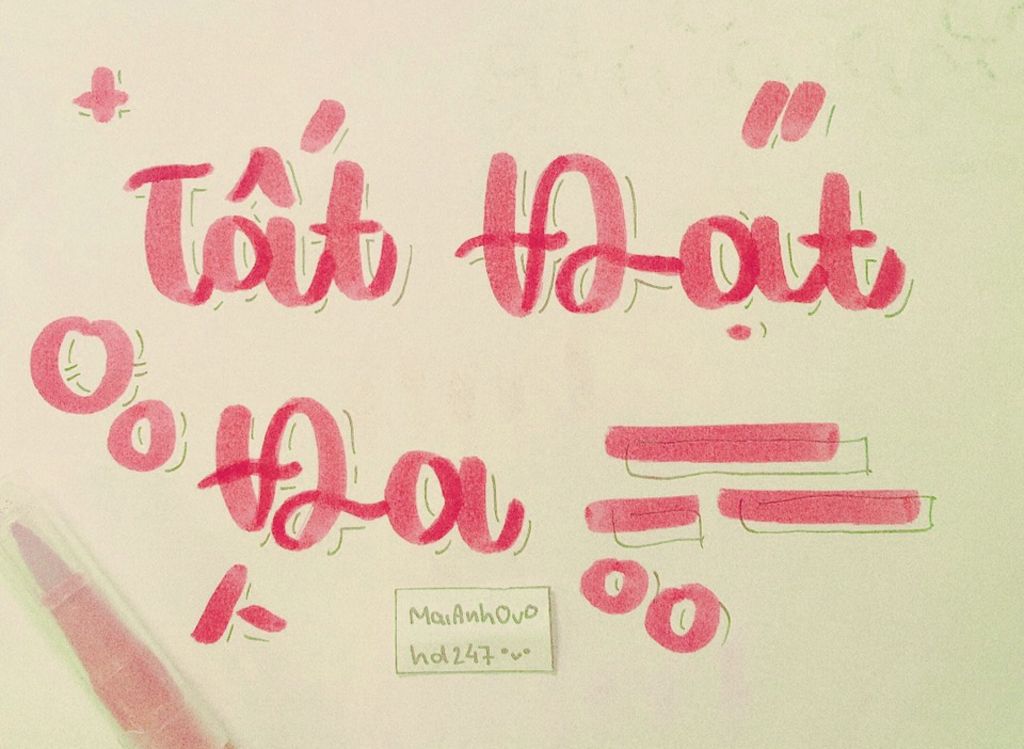 Tất Đạt
Đa
MaiAnhOvO
hd247